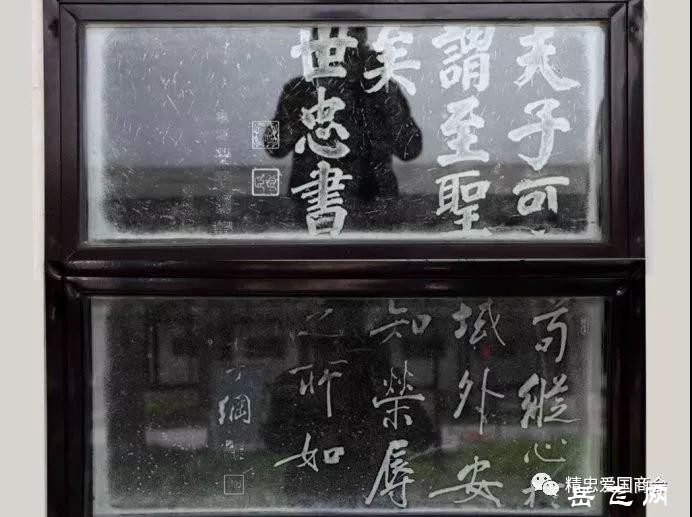 夫子可
謂至聖
矣
世忠書
苟縱心於
域外安
知榮辱
之所如
子綱
精忠爱国商会
岳飞网